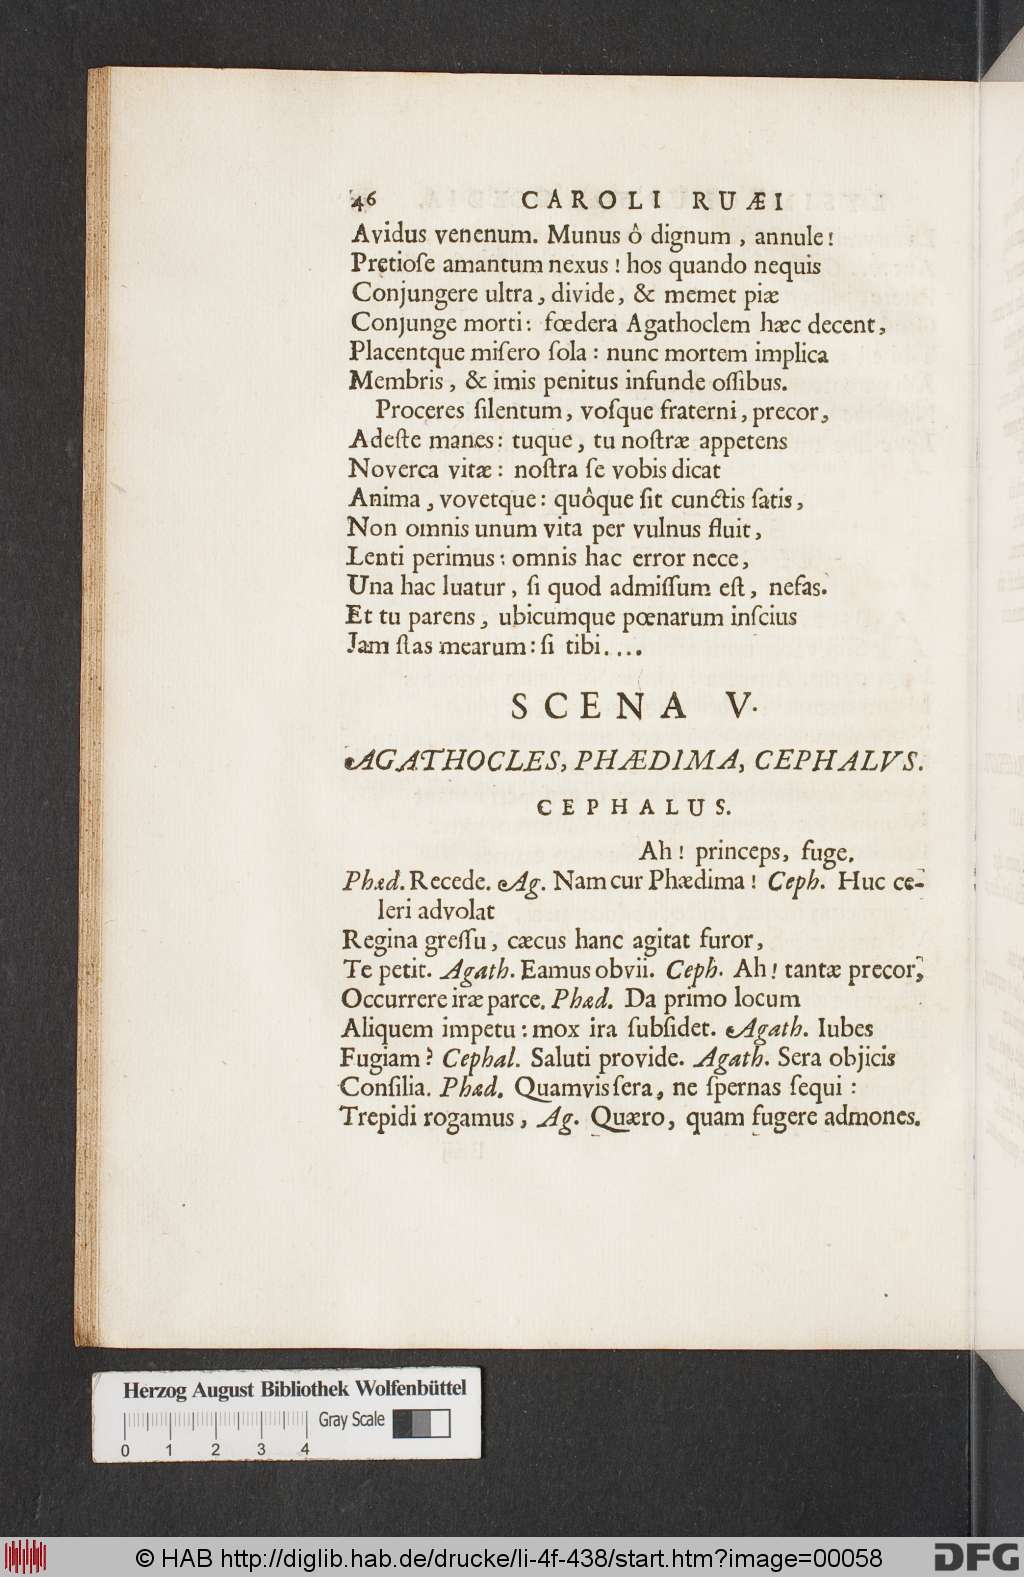 46 CAROLI RUÆI
Avidus venenum. Munus ô dignum, annule!
Pretiose amantum nexus! hos quando nequis
Conjungere ultra, divide, & memet piæ
Conjunge morti: fœdera Agathoclem hæc decent,
Placentque miſero ſola: nunc mortem implica
Membris, & imis penitus infunde oſſibus.
Proceres ſilentum, voſque fraterni, precor,
Adeſte manes: tuque, tu noſtræ appetens
Noverca vitæ: noſtra ſe vobis dicat
Anima, vovetque: quôque ſit cunctis ſatis,
Non omnis unum vita per vulnus fluit,
Lenti perimus: omnis hac error nece,
Una hac luatur, ſi quod admiſſum eſt, nefas.
Et tu parens, ubicumque pœnarum inſcius
Jam ſtas mearum: ſi tibi....
SCENA V.
AGATHOCLES, PHÆDIMA, CEPHALVS.
CEPHALUS.
Ah! princeps, fuge.
Phæd. Recede. Ag. Nam cur Phædima! Ceph. Huc ce-
leri advolat
Regina greſſu, cæcus hanc agitat furor,
Te petit. Agath. Eamus obvii. Ceph. Ah! tantæ precor,
Occurrere iræ parce. Phæd. Da primo locum
Aliquem impetu: mox ira ſubſidet. Agath. Iubes
Fugiam? Cephal. Saluti provide. Agath. Sera objicis
Conſilia. Phæd. Quamvis ſera, ne ſpernas ſequi:
Trepidi rogamus, Ag. Quæro, quam fugere admones.
Herzog August Bibliothek Wolfenbüttel
Gray Scale
0 1 2 3 4
© HAB http://diglib.hab.de/drucke/li-4f-438/start.htm?image=00058
DFG